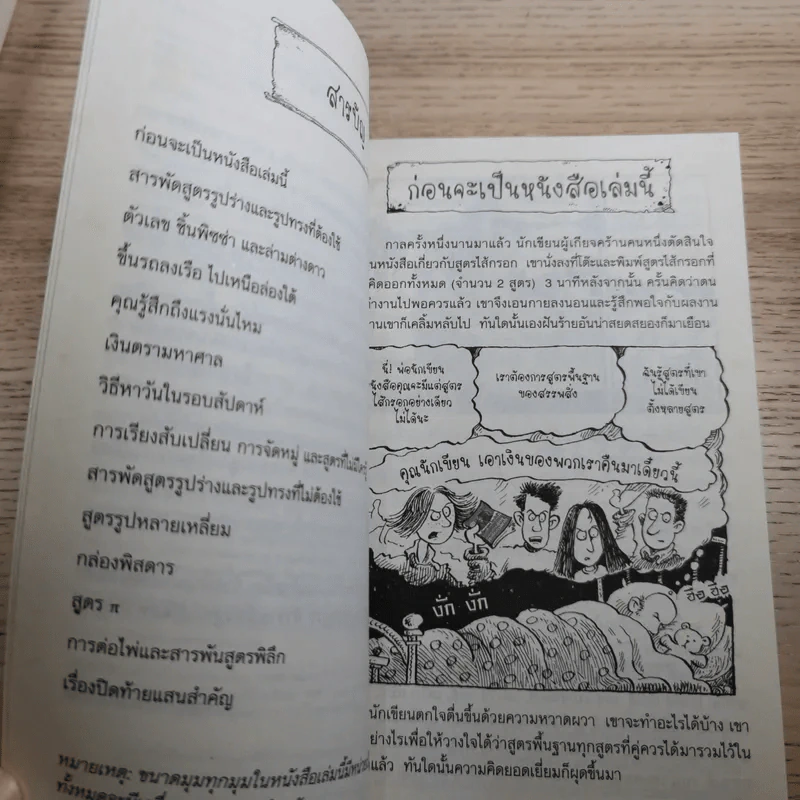 สารบัญ
ก่อนจะเป็นหนังสือเล่มนี้
สารพัดสูตรรูปร่างและรูปทรงที่ต้องใช้
ตัวเลข ชิ้นพิซซ่า และล่ามต่างดาว
ขึ้นรถลงเรือ ไปเหนือล่องใต้
คุณรู้สึกถึงแรงนั่นไหม
เงินตรามหาศาล
วิธีหาวันในรอบสัปดาห์
การเรียงสับเปลี่ยน การจัดหมู่ และสูตรที่ไม่มีใคร
สารพัดสูตรรูปร่างและรูปทรงที่ไม่ต้องใช้
สูตรรูปหลายเหลี่ยม
กล่องพิสดาร
สูตร π
การต่อไพ่และสารพันสูตรพิลึก
เรื่องปิดท้ายแสนสำคัญ
หมายเหตุ: ขนาดมุมทุกมุมในหนังสือเล่มนี้มีหน่วย
ก่อนจะเป็นหนังสือเล่มนี้
กาลครั้งหนึ่งนานมาแล้ว นักเขียนผู้เกียจคร้านคนหนึ่งตัดสินใจ
นหนังสือเกี่ยวกับสูตรไส้กรอก เขานั่งลงที่โต๊ะและพิมพ์สูตรไส้กรอกที่
คิดออกทั้งหมด (จำนวน 2 สูตร) 3 นาทีหลังจากนั้น ครั้นคิดว่าตน
ำงานไปพอควรแล้ว เขาจึงเอนกายลงนอนและรู้สึกพอใจกับผลงาน
านเขาก็เคลิ้มหลับไป ทันใดนั้นเองฝันร้ายอันน่าสยดสยองก็มาเยือน
นี่! พ่อนักเขียน
หนังสือคุณจะมีแต่สูตร
ไส้กรอกอย่างเดียว
ไม่ได้นะ
เราต้องการสูตรพื้นฐาน
ของสรรพสิ่ง
ฉันรู้สูตรที่เขา
ไม่ได้เขียน
ตั้งหลายสูตร
คุณนักเขียน เอาเงินของพวกเราคืนมาเดี๋ยวนี้
งัก งัก
ฮือ ฮือ
นักเขียนตกใจตื่นขึ้นด้วยความหวาดผวา เขาจะทำอะไรได้บ้าง เขา
ย่างไรเพื่อให้วางใจได้ว่าสูตรพื้นฐานทุกสูตรที่คู่ควรได้มารวมไว้ใน
แล้ว ทันใดนั้นความคิดยอดเยี่ยมก็ผุดขึ้นมา